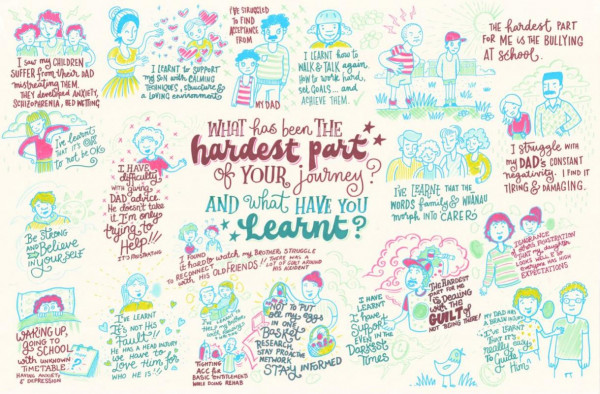 I saw my CHILDREN
SUFFER from their DAD
MISTREATING THEM.
THEY DEVELOPED ANXIETY,
SCHIZOPHRENIA, BED WETTING
I LEARNT to SUPPORT
my SON with CALMING
TECHNIQUES, STRUCTURE &
a LOVING environment
I'VE STRUGGLED
TO FIND
ACCEPTANCE
FROM
MY DAD
I LEARNT how to
WALK & TALK again,
how to work hard,
set GOALS... and
ACHIEVE THEM.
THE hardest PART
FOR ME IS THE BULLYING
AT school.
I've learnt
THAT it's OK
to not be OK
I HAVE
DIFFICULTY
with
giving
DAD advice.
He doesn't take
it. I'm only
trying
to
Help!!!
IT'S FRUSTRATING
WHAT has been THE
hardest part
of YOUR journey?
AND what HAVE YOU
Learnt?
I'VE LEARNT THAT THE
WORDS family & WHĀNAU
morph INTO CARERS
I STRUGGLE with
my DAD's CONSTANT
negativity. I FIND IT
TIRING & DAMAGING.
Be STRONG
AND
Believe
IN YOURSELF
I FOUND
it hard to watch my BROTHERS STRUGGLE
RECONNECT
with HIS OLD FRIENDS!!
THERE WAS A
LOT OF GIRLS AROUND
HIS ACCIDENT
IGNORANCE
of others,
THAT my daughter
LOOKS WELL &
everyone HAS HIGH
EXPECTATIONS
WAKING UP,
GOING TO
SCHOOL
with UNKNOWN
TIMETABLE
HAVING ANXIETY
& DEPRESSION
I'VE LEARNT
It's NOT HIS
Fault!!
HE HAS a HEAD INJURY
WE HAVE to
Love Him for
WHO HE IS!!
FIGHTING
ACC for
BASIC ENTITLEMENT
WHILE DOING REHAB
NOT TO PUT
all my EGGS
IN ONE
Basket
RESEARCH
STAY PROACTIVE
NETWORK
STAY INFORMED
I HAVE
LEARNT
I have
Support
EVEN IN the
DARKEST
Times
THE HARDEST
PART FOR ME
is Dealing
WITH THE
GUILT
of NOT BEING THERE!
MY DAD HAS
a BRAIN INJURY
I'VE LEARNT
THAT it's
really easy
to Guide
Him